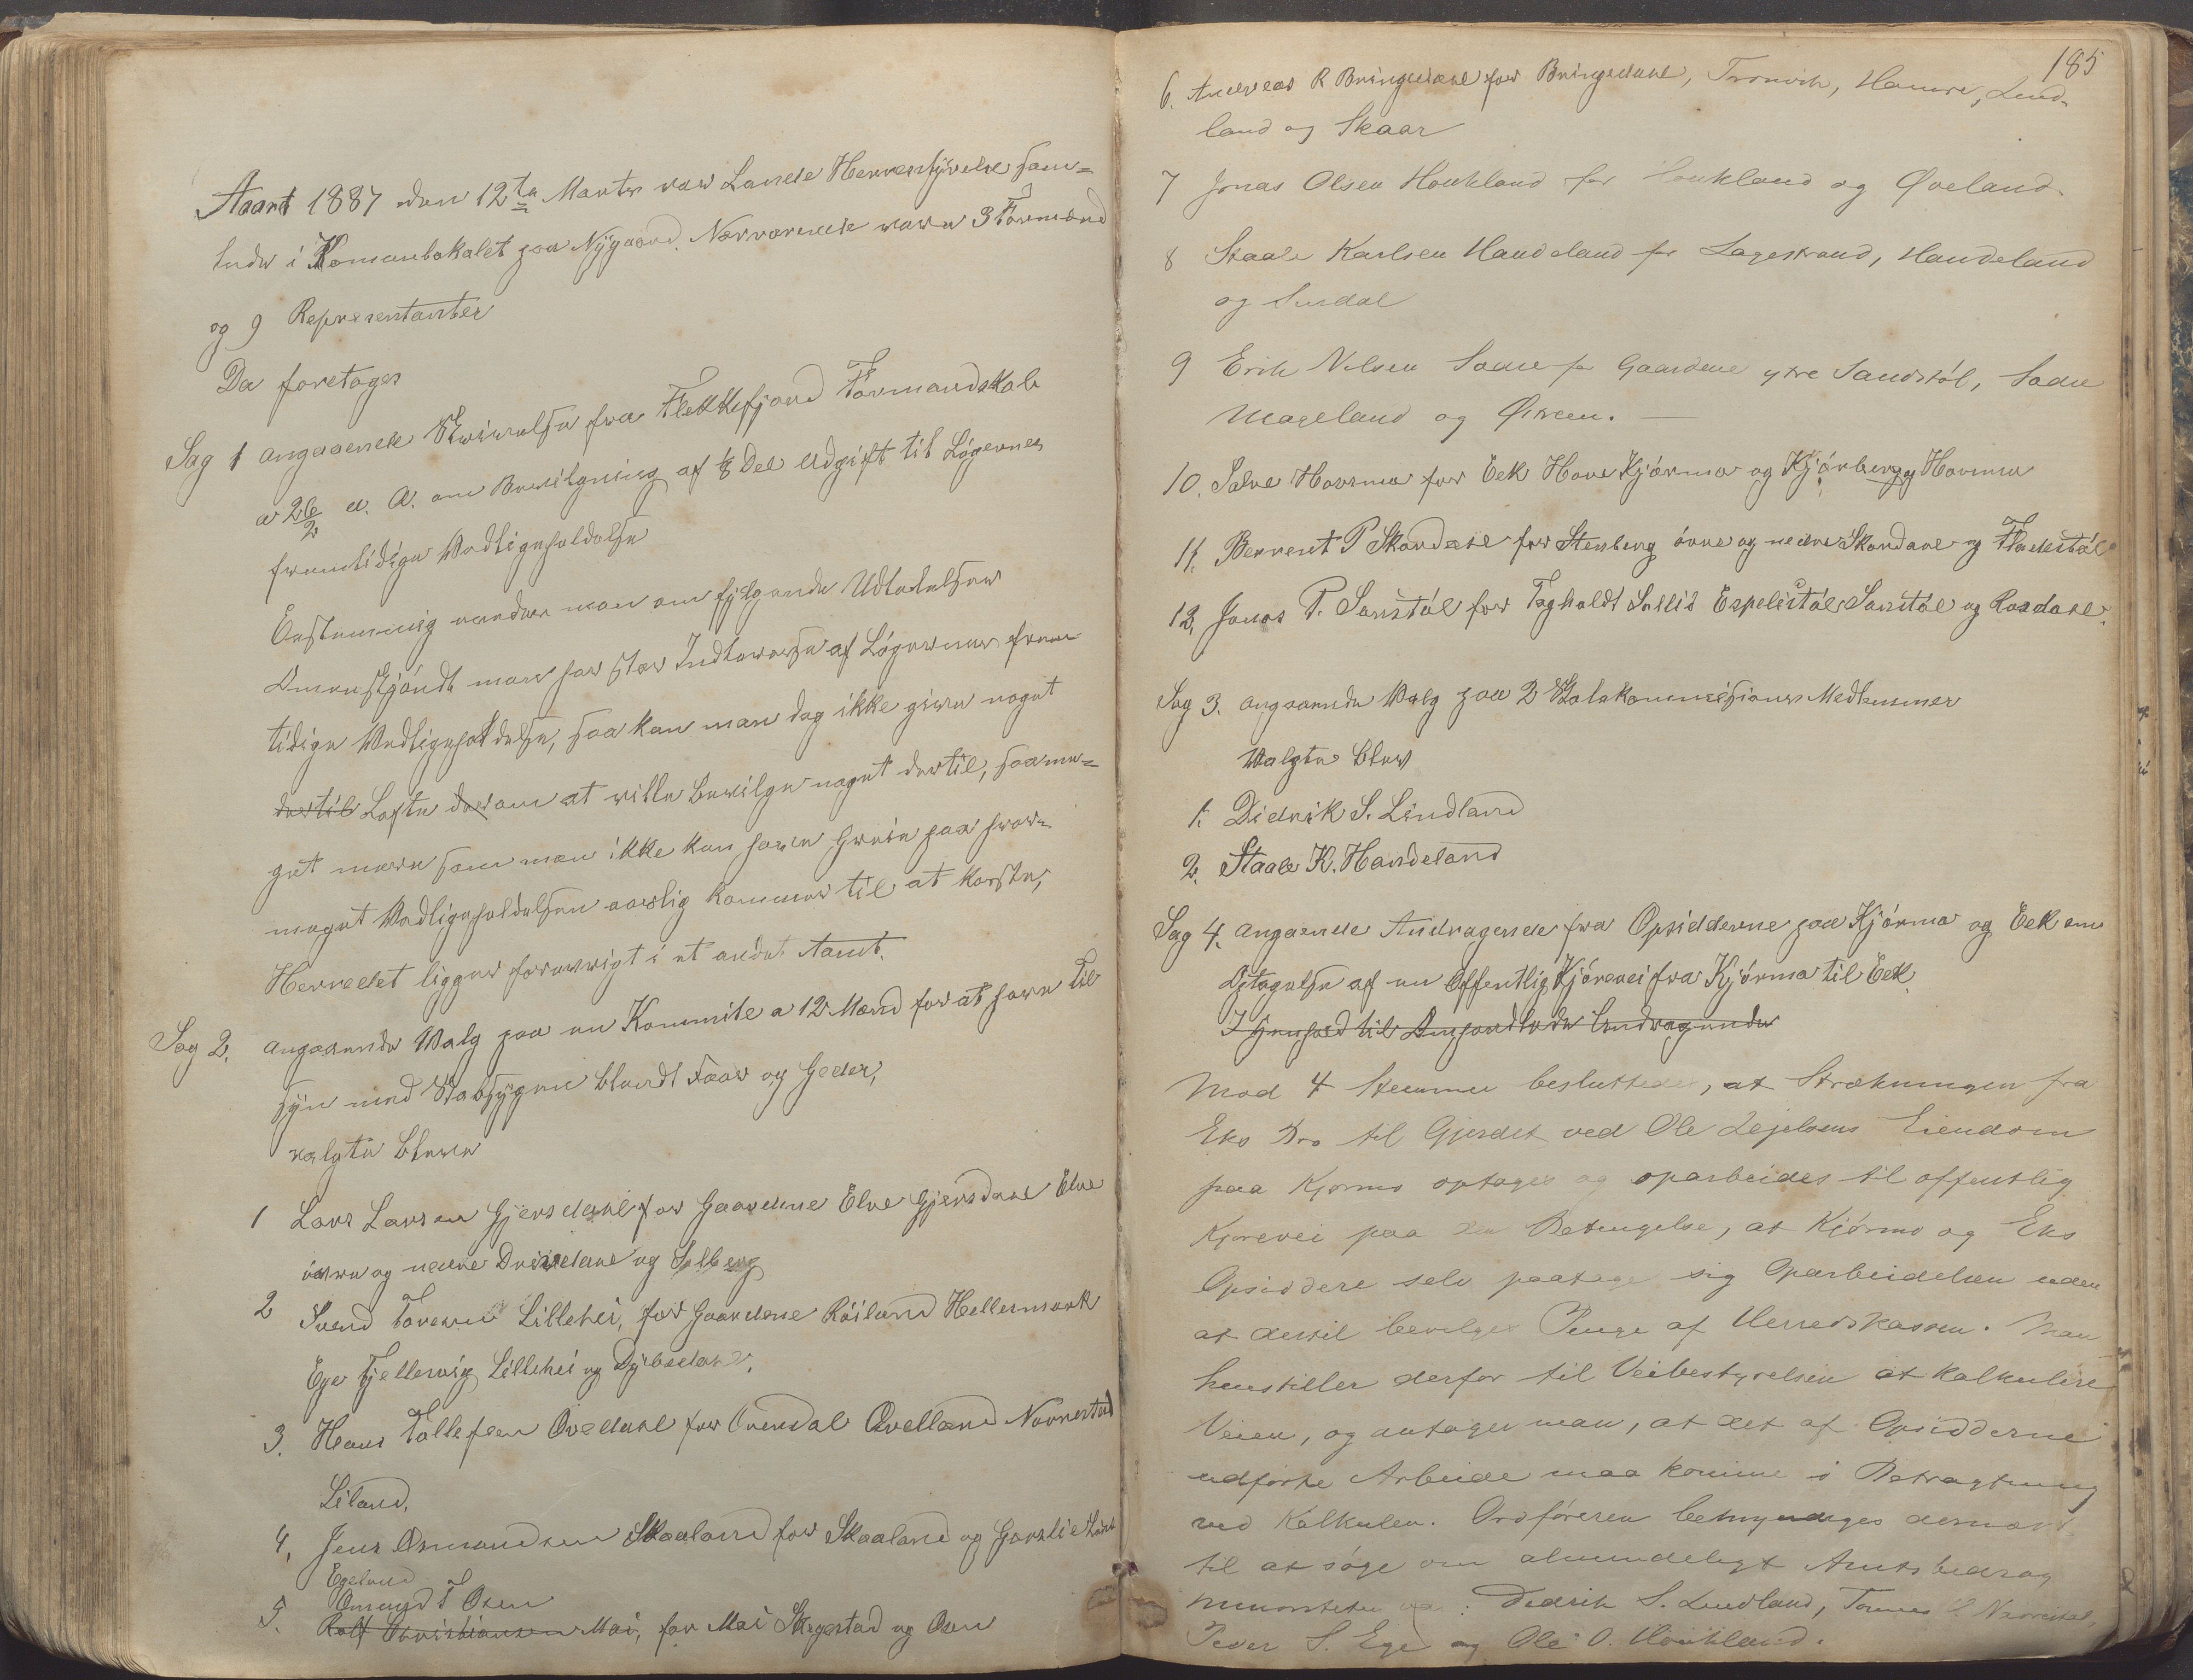 Aaret 1887 den 12te Marts var Lunde Herredstyrelse sam-
ledes i Komunlokalet paa Nygaard. Nærværende vare 3 Formænd
og 9 Representanter
Da foretoges
Sag 1 angaaende Skrivelse fra Flekkefjord Formandskab
a 26/2 d. A. om Bevilgning af 1/8 Del Udgift til Løgernes
fremtidige Vedligeholdelse
Enstemmig enedes man om følgende Udtalelse
Omenskjøndt man har stor Interesse af Løgernes frem
tidige Vedligeholdelse, saa kan man dog ikke give noget
dertil Løfte derom at ville bevilge noget dertil, saame-
get mere som man ikke kan have Greie paa hvor-
meget Vedligeholdelsen aarlig kommer til at koste,
Herredet ligger forøvrigt i et andet Aamt.
Sag 2. angaaende Valg paa en Kommite a 12 Mænd for at have til
syn med Skabsygen blandt Faar og Geder,
valgte bleve
1 Lars Larsen Gjersdahl for Gaardene Elve Gjersdahl Elve
øvre og nedre Dreiedahl og Solberg
2 Svend Lillehei, for Gaardene Røiland Hellesmark
Ege Fjellesvig Lillehei og Dybsdahl.
3. Hans Tollefsen Ovedahl for Ovendal Ovelland Novrestad
Liland.
4, Jens Osmundsen Skaaland for Skaaland og
Egeland
Omund T Osen
5. Rolf Christiansen Moi, for Moi Skegestad og Osen
185
6. Andreas R Bringedahl for Bringedahl, Tronvik, Hamre, Lind-
land og Skaar
7 Jonas Olsen Haukland for Haukland og Øveland.
8 Staale Karlsen Handeland for Lagestrand, Handeland
og Surdal
9 Erik Nilsen Sadue for Gaardene ytre Sandstøl, Sadue
Mageland og
10. Salve Hovsmo for Eek Hove Kjørmo og Kjørberg og Hovsmo
11. Berrent P Skordahl for Stenberg øvre og nedre Skordahl og Fladestøl
12. Jonas P. Sanstøl for Espelistøl Sanstøl og Rosdahl.
Sag 3. angaaende Valg paa 2 Skolekommisions Medlemmer
Valgte blev
1. Didrik S. Lindland
2. Staale K. Handeland
Sag 4. angaaende Andragende fra Opsidderne paa Kjørmo og Eek om
Optagelse af en Offentlig Kjørevei fra Kjørmo til Eek.
I Henhold til Andragende
Mod 4 Stemmer besluttedes, at Strækningen fra
Eks Bro til Gjerdet ved Ole Eiendom
paa Kjørmo optages og oparbeides til offentlig
Kjørevei paa den Betingelse, at Kjørmo og Eks
Opsiddere selv paatage sig Oparbeidelsen uden
at dertil bevilges Penge af Herredskassen. Man
henstiller derfor til Veibestyrelsen at kalkulere
Veien, og antager man, at det af Opsidderne
udførte Arbeide maa komme i Betragtning
ved Kalkulen. Ordføreren bemyndiges dernæst
til at søge om almindeligt Amtsbidrag
Minoriteten var: Didrik S. Lindland, Tønnes S. Navrestad,
Peder S. Ege og Ole O. Haukland.